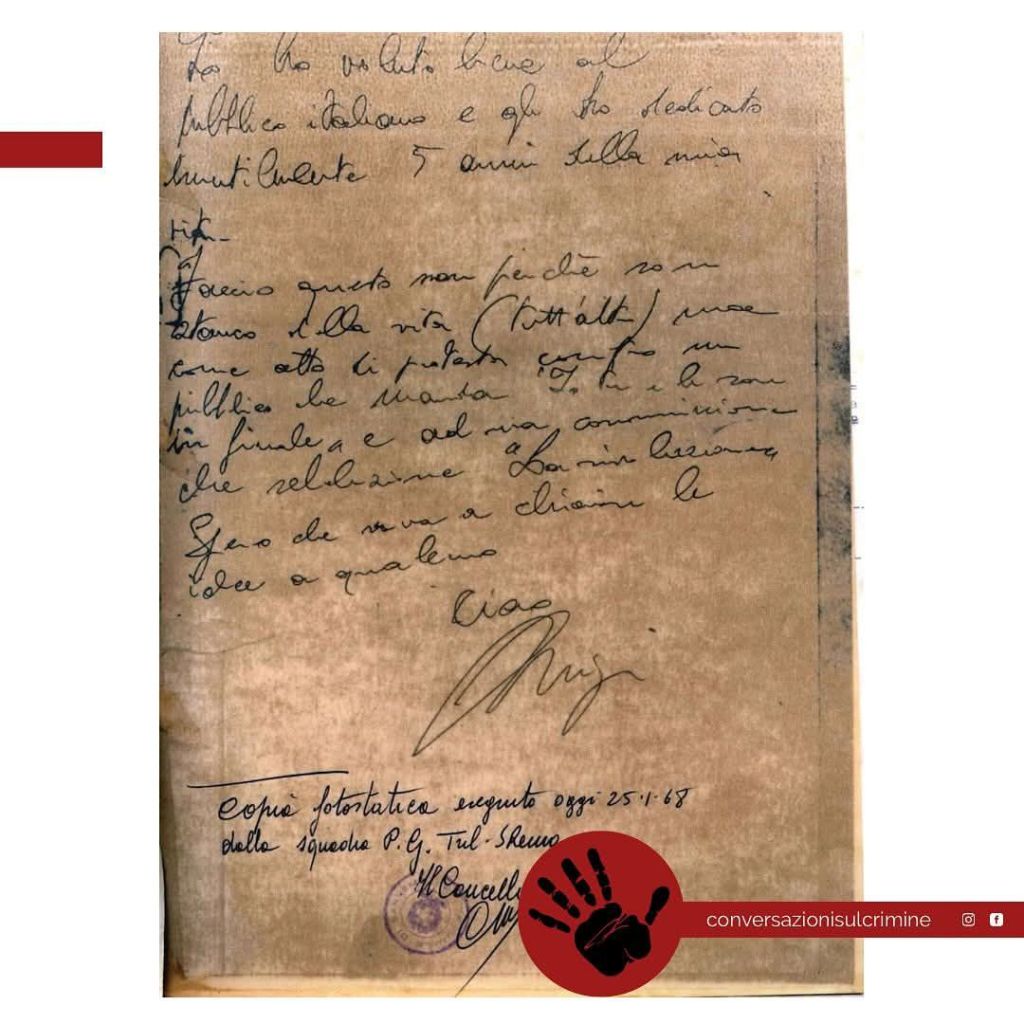 Io ho voluto bene al
pubblico italiano e gli ho dedicato
inutilmente 5 anni della mia
vita.
Faccio questo non perché son
stanco della vita (tutt'altro) ma
come atto di protesta contro un
pubblico che manda "Io tu e le rose
in finale" e ad una commissione
che seleziona "La rivoluzione"
Spero che serva a chiarire le
idee a qualcuno
Ciao
Luigi
Copia fotostatica eseguita oggi 25·1·68
dalla squadra P.G. Trib - SRemo
Il Cancell
conversazionisulcrimine